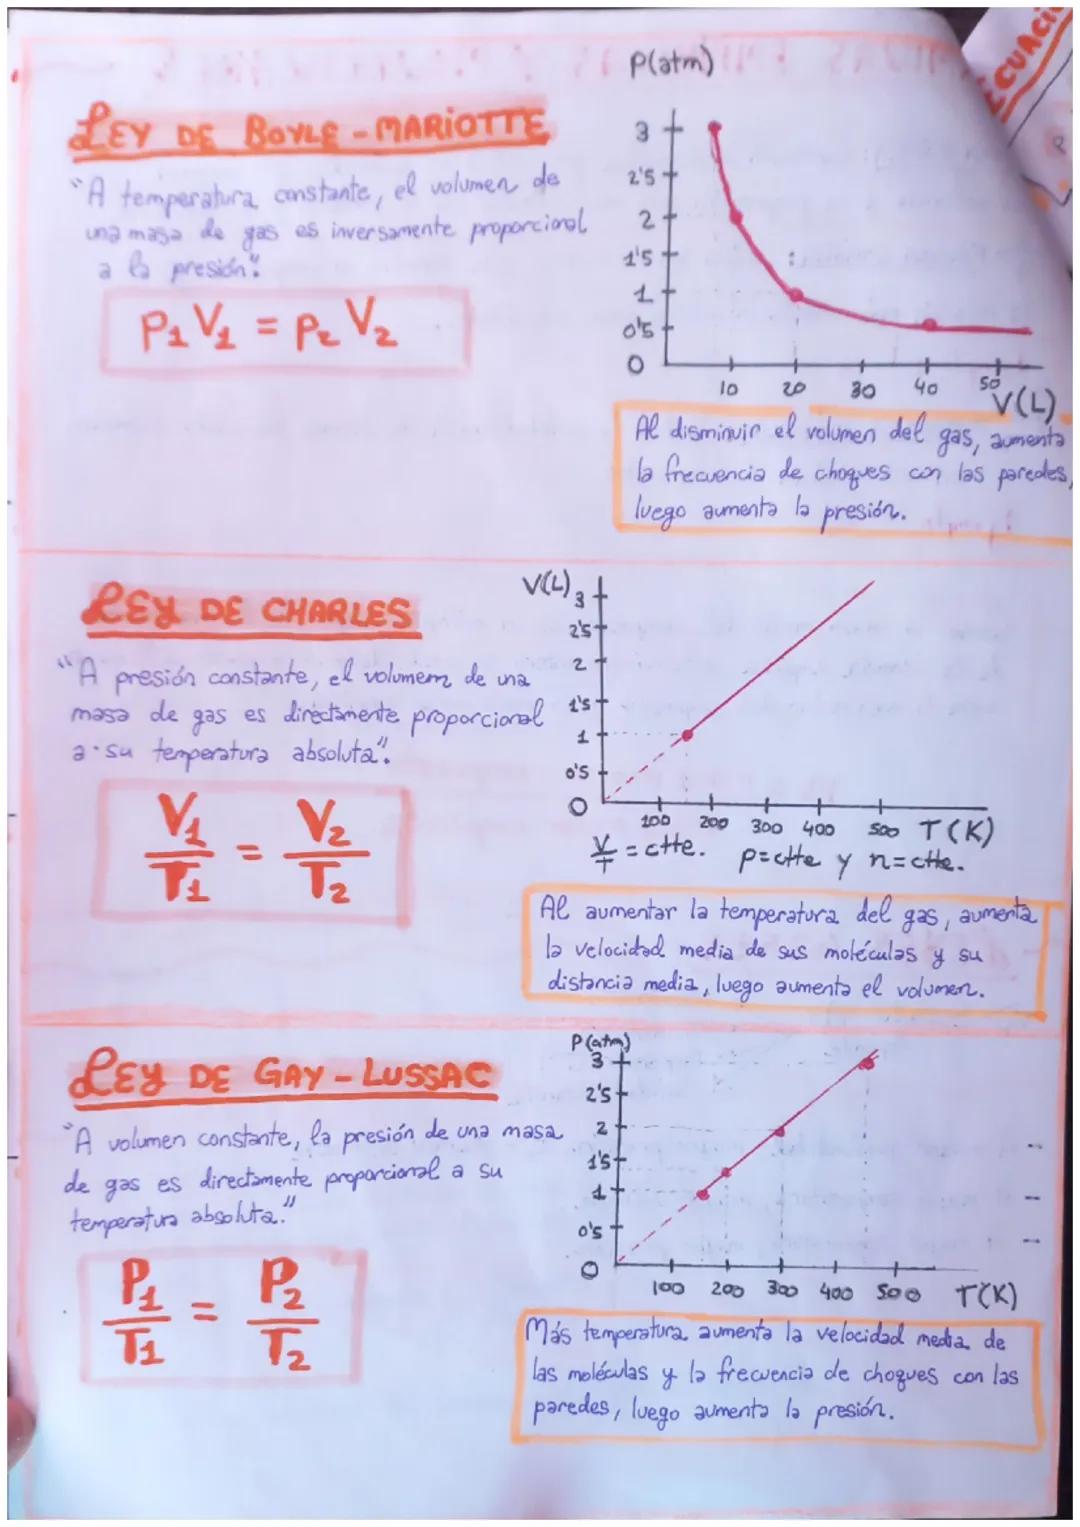 ECUACI
LEY DE BOYLE - MARIOTTE
"A temperatura constante, el volumen de
una masa de gas es inversamente proporcional
a la presión".
P₁ V₁ = P₂ V₂
P(atm)
3
2'5
2
1'5
1
0'5
0
10 20 30 40 50
V(L)
Al disminuir el volumen del gas, aumenta
la frecuencia de choques con las paredes,
luego aumenta la presión.
LEY DE CHARLES
"A presión constante, el volumem de una
masa de gas es directamente proporcional
a su temperatura absoluta".
V₁/T₁ = V₂/T₂
V(L)
3
2'5
2
1'5
1
0'5
0
100 200 300 400 500 T(K)
V/T = ctte. p=ctte y n=ctte.
Al aumentar la temperatura del gas, aumenta
la velocidad media de sus moléculas y su
distancia media, luego aumenta el volumen.
LEY DE GAY - LUSSAC
"A volumen constante, la presión de una masa
de gas es directamente proporcional a su
temperatura absoluta."
P₁/T₁ = P₂/T₂
P(atm)
3
2'5
2
1'5
1
0'5
0
100 200 300 400 500 T(K)
Más temperatura aumenta la velocidad media de
las moléculas y la frecuencia de choques con las
paredes, luego aumenta la presión.